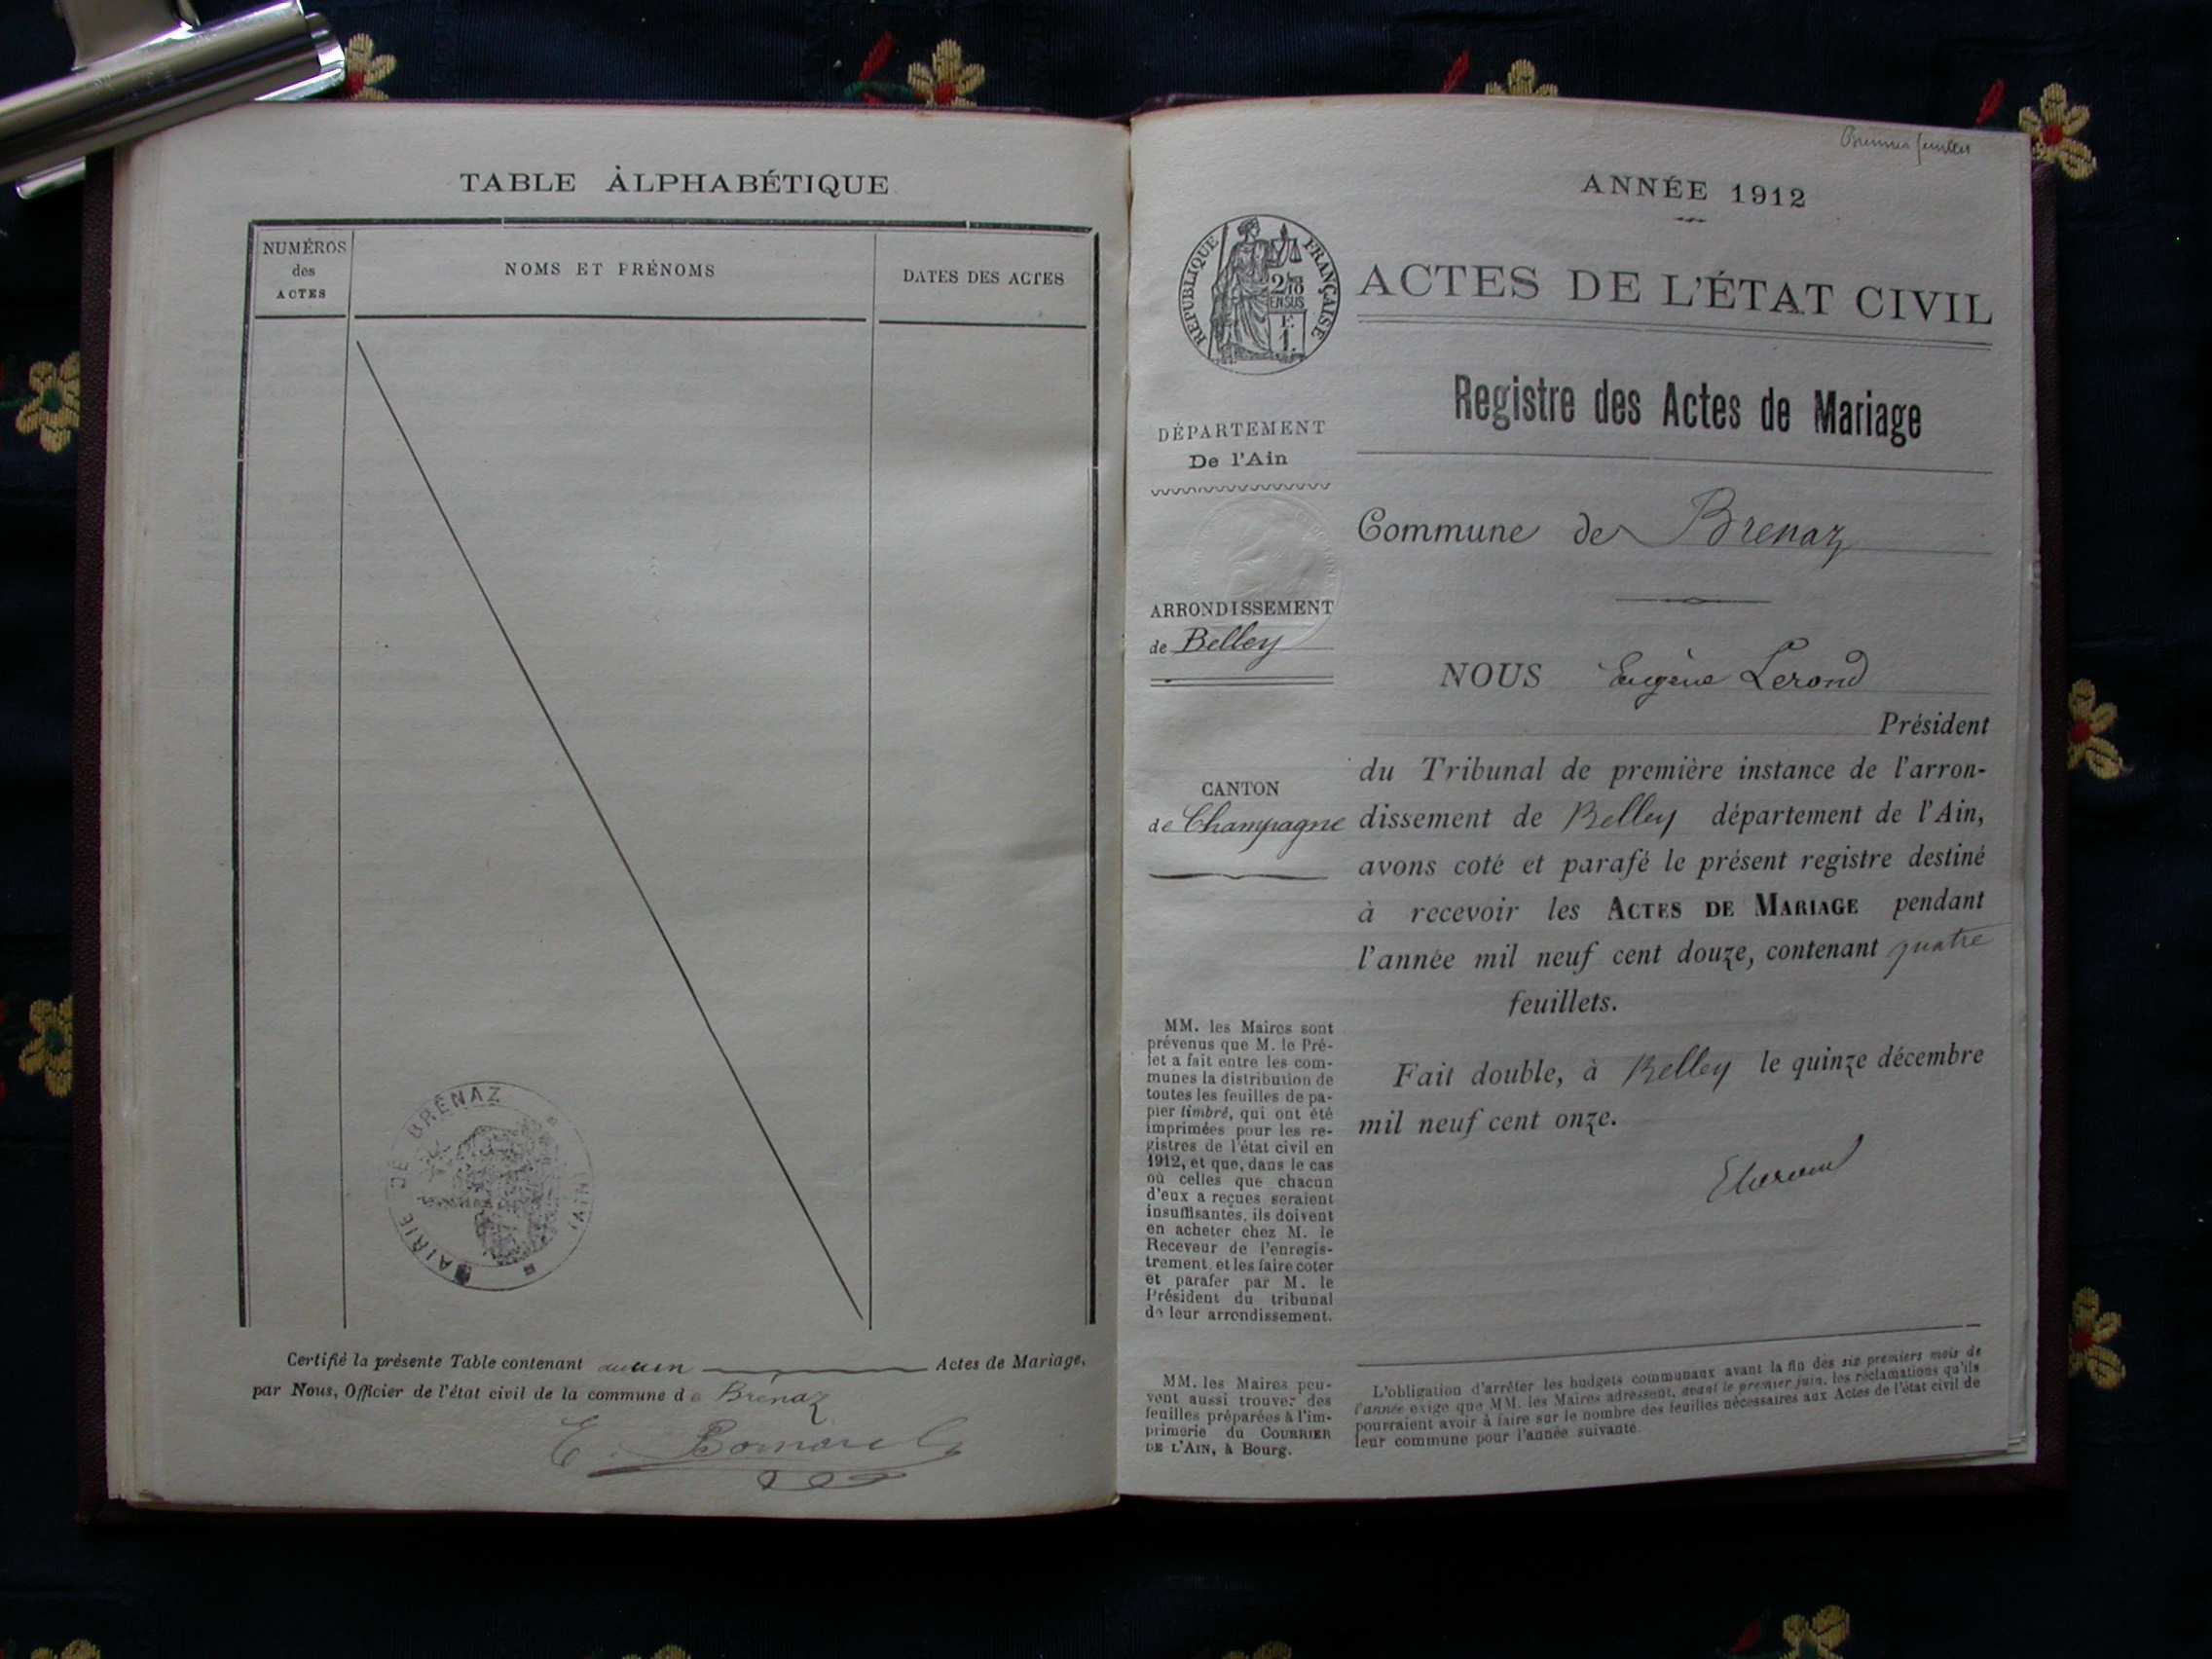 TABLE ALPHABÉTIQUE
NUMÉROS
des
ACTES
NOMS ET PRÉNOMS
DATES DES ACTES
MAIRIE DE BRÉNAZ
(AIN)
Certifié la présente Table contenant aucun Actes de Mariage,
par Nous, Officier de l'état civil de la commune de Brenaz
E. Bornarel
feuillet
ANNÉE 1912
REPUBLIQUE FRANÇAISE
2/10
EN SUS
ACTES DE L'ÉTAT CIVIL
Registre des Actes de Mariage
DÉPARTEMENT
De l'Ain
Commune de Brenaz
ARRONDISSEMENT
de Belley
CANTON
de Champagne
NOUS Eugène Lerond
Président
du Tribunal de première instance de l'arron-
dissement de Belley département de l'Ain,
avons coté et parafé le présent registre destiné
à recevoir les ACTES DE MARIAGE pendant
l'année mil neuf cent douze, contenant quatre
feuillets.
Fait double, à Belley le quinze décembre
mil neuf cent onze.
ELerond
MM. les Maires sont
prévenus que M. le Pré-
fet a fait entre les com-
munes la distribution de
toutes les feuilles de pa-
pier timbré, qui ont été
imprimées pour les re-
gistres de l'état civil en
1912, et que, dans le cas
où celles que chacun
d'eux a reçues seraient
insuffisantes, ils doivent
en acheter chez M. le
Receveur de l'enregis-
trement, et les faire coter
et parafer par M. le
Président du tribunal
de leur arrondissement.
MM. les Maires peu-
vent aussi trouver des
feuilles préparées à l'im-
primerie du COURRIER
DE L'AIN, à Bourg.
L'obligation d'arrêter les budgets communaux avant la fin des six premiers mois de
l'année exige que MM. les Maires adressent, avant le premier juin, les réclamations qu'ils
pourraient avoir à faire sur le nombre des feuilles nécessaires aux Actes de l'état civil de
leur commune pour l'année suivante.